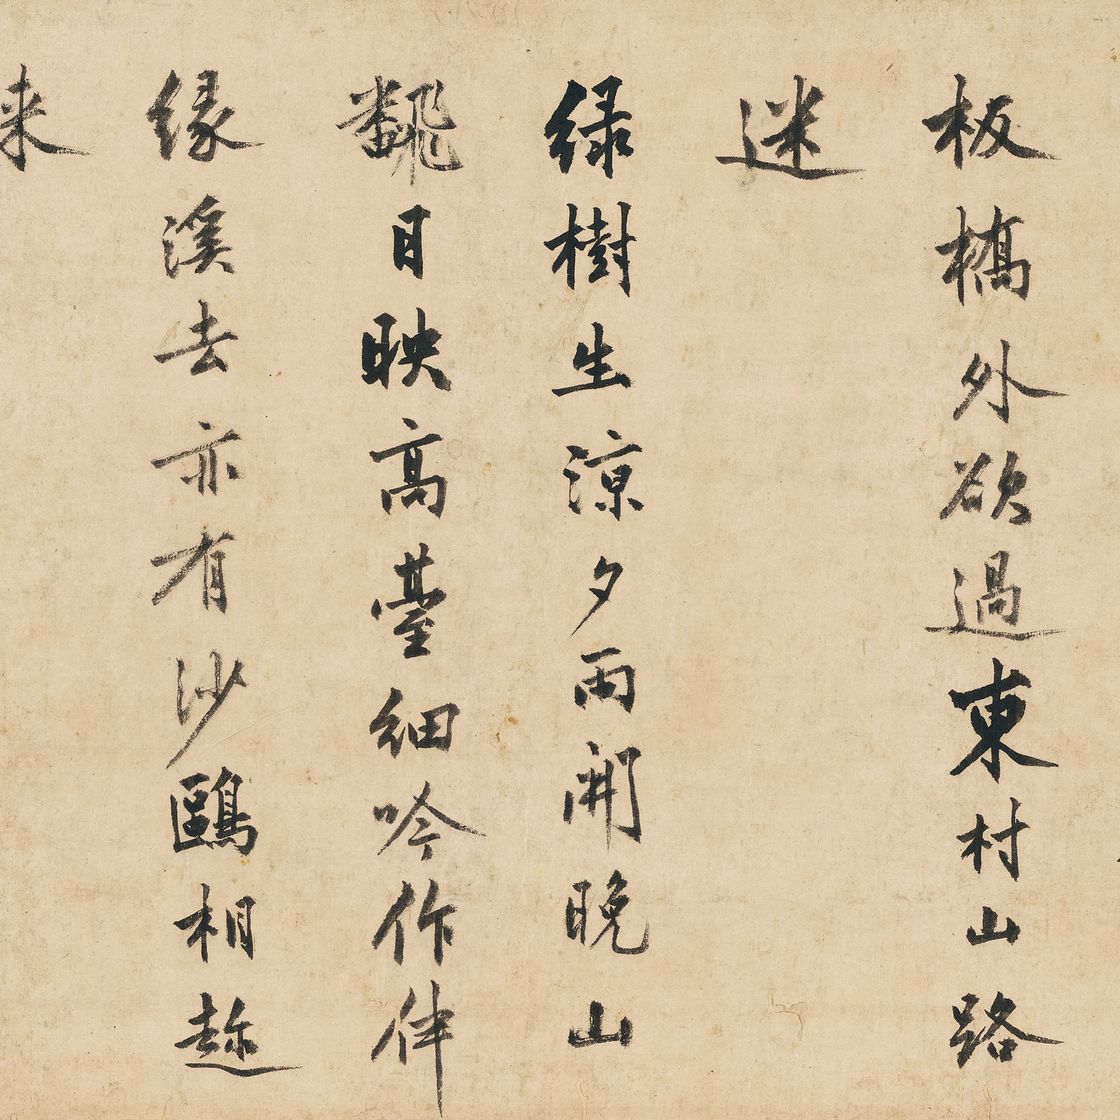 板橋外欲過東村山路
迷
緑樹生涼夕雨開晚山
飜日映高臺細吟作伴
緣溪去亦有沙鷗相趂
来